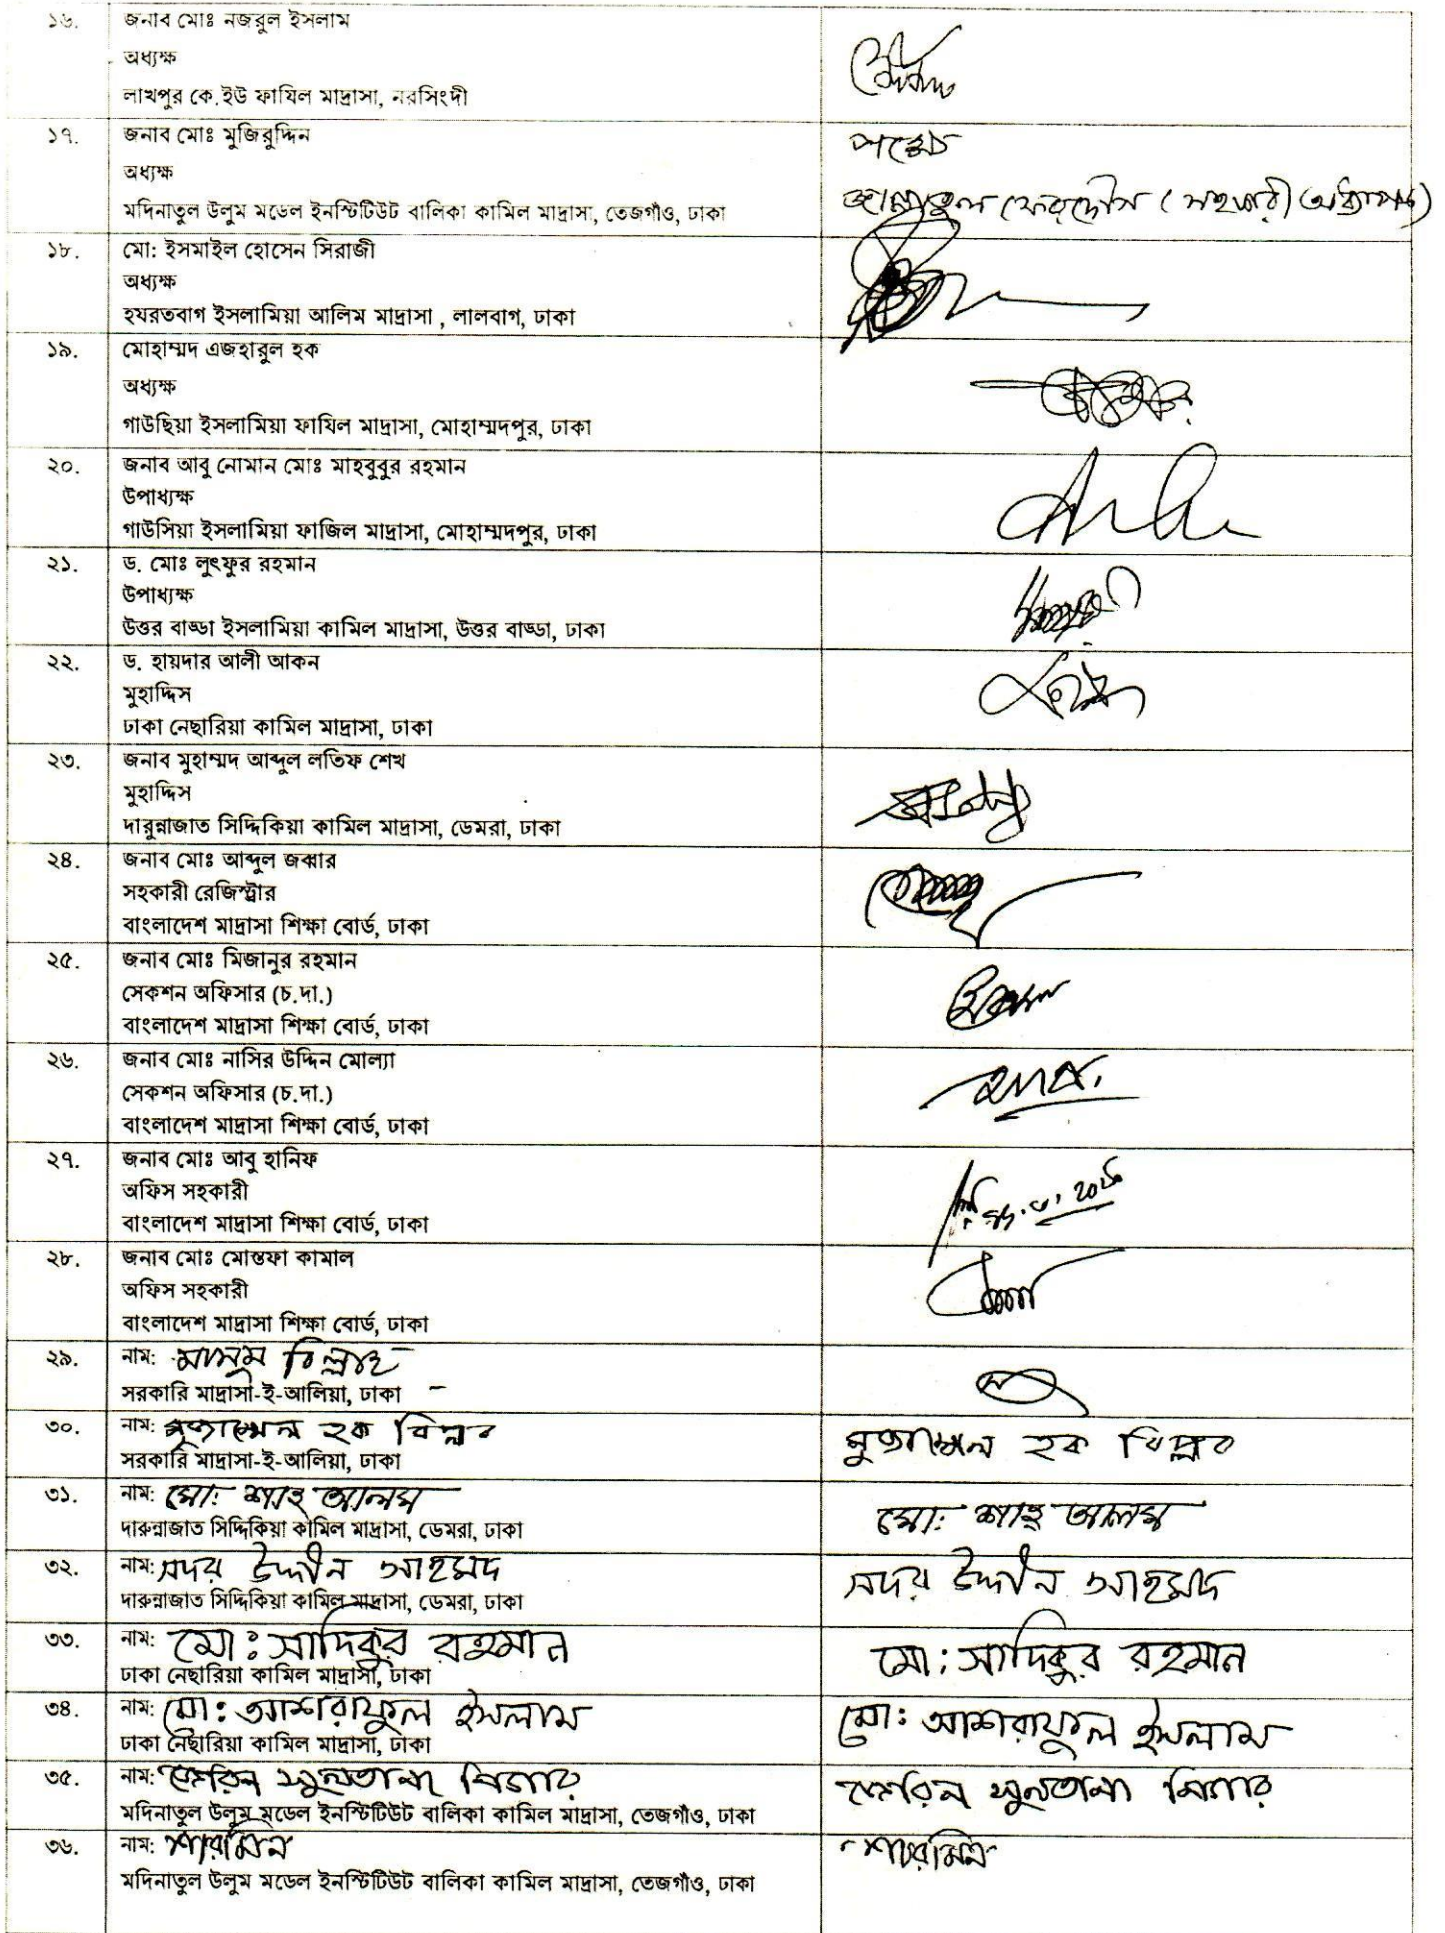 ১৬. জনাব মোঃ নজরুল ইসলাম
অধ্যক্ষ
লাখপুর কে.ইউ ফাযিল মাদ্রাসা, নরসিংদী
১৭. জনাব মোঃ মুজিবুদ্দিন পক্ষে
অধ্যক্ষ
মদিনাতুল উলুম মডেল ইনস্টিটিউট বালিকা কামিল মাদ্রাসা, তেজগাঁও, ঢাকা জান্নাতুল ফেরদৌস (সহকারী অধ্যাপক)
১৮. মো: ইসমাইল হোসেন সিরাজী
অধ্যক্ষ
হযরতবাগ ইসলামিয়া আলিম মাদ্রাসা , লালবাগ, ঢাকা
১৯. মোহাম্মদ এজহারুল হক
অধ্যক্ষ
গাউছিয়া ইসলামিয়া ফাযিল মাদ্রাসা, মোহাম্মদপুর, ঢাকা
২০. জনাব আবু নোমান মোঃ মাহবুবুর রহমান
উপাধ্যক্ষ
গাউসিয়া ইসলামিয়া ফাজিল মাদ্রাসা, মোহাম্মদপুর, ঢাকা
২১. ড. মোঃ লুৎফুর রহমান
উপাধ্যক্ষ
উত্তর বাড্ডা ইসলামিয়া কামিল মাদ্রাসা, উত্তর বাড্ডা, ঢাকা
২২. ড. হায়দার আলী আকন
মুহাদ্দিস
ঢাকা নেছারিয়া কামিল মাদ্রাসা, ঢাকা
২৩. জনাব মুহাম্মদ আব্দুল লতিফ শেখ
মুহাদ্দিস
দারুন্নাজাত সিদ্দিকিয়া কামিল মাদ্রাসা, ডেমরা, ঢাকা
২৪. জনাব মোঃ আব্দুল জব্বার
সহকারী রেজিস্ট্রার
বাংলাদেশ মাদ্রাসা শিক্ষা বোর্ড, ঢাকা
২৫. জনাব মোঃ মিজানুর রহমান
সেকশন অফিসার (চ.দা.)
বাংলাদেশ মাদ্রাসা শিক্ষা বোর্ড, ঢাকা
২৬. জনাব মোঃ নাসির উদ্দিন মোল্যা
সেকশন অফিসার (চ.দা.)
বাংলাদেশ মাদ্রাসা শিক্ষা বোর্ড, ঢাকা
২৭. জনাব মোঃ আবু হানিফ
অফিস সহকারী
বাংলাদেশ মাদ্রাসা শিক্ষা বোর্ড, ঢাকা
২৮. জনাব মোঃ মোস্তফা কামাল
অফিস সহকারী
বাংলাদেশ মাদ্রাসা শিক্ষা বোর্ড, ঢাকা
২৯. নাম: মাসুম বিল্লাহ
সরকারি মাদ্রাসা-ই-আলিয়া, ঢাকা
৩০. নাম: মুজাম্মেল হক বিপ্লব মুজাম্মেল হক বিপ্লব
সরকারি মাদ্রাসা-ই-আলিয়া, ঢাকা
৩১. নাম: মো: শাহ্ আলম মো: শাহ্ আলম
দারুন্নাজাত সিদ্দিকিয়া কামিল মাদ্রাসা, ডেমরা, ঢাকা
৩২. নাম: সদর উদ্দীন আহমদ সদর উদ্দীন আহমদ
দারুন্নাজাত সিদ্দিকিয়া কামিল মাদ্রাসা, ডেমরা, ঢাকা
৩৩. নাম: মো: সাদিকুর রহমান মো: সাদিকুর রহমান
ঢাকা নেছারিয়া কামিল মাদ্রাসা, ঢাকা
৩৪. নাম: মো: আশরাফুল ইসলাম মো: আশরাফুল ইসলাম
ঢাকা নেছারিয়া কামিল মাদ্রাসা, ঢাকা
৩৫. নাম: জেরিন সুলতানা নিগার জেরিন সুলতানা নিগার
মদিনাতুল উলুম মডেল ইনস্টিটিউট বালিকা কামিল মাদ্রাসা, তেজগাঁও, ঢাকা
৩৬. নাম: শারমিন শারমিন
মদিনাতুল উলুম মডেল ইনস্টিটিউট বালিকা কামিল মাদ্রাসা, তেজগাঁও, ঢাকা